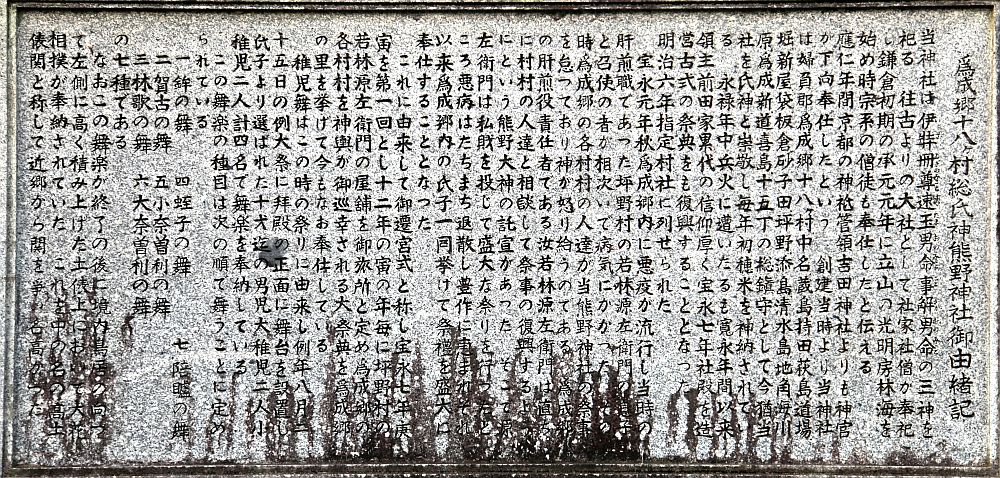 為成郷十八ヶ村総氏神熊野神社御由緒記
当神社は伊弉冊尊速玉男命事解男命の三神を
祀る 往古よりの大社として社家社僧が奉祀
し鎌倉初期の承元元年に立山の光明房林海を
始め時宗系の僧徒も奉仕したと伝える
應仁年間京都の神祗管領吉田神社よりも神官
が下向奉仕したという 創建当時より当神社
は婦負郡為成郷十八村中名蔵島持田萩島道場
堀新屋袋板倉砂子田坪野添島清水島地角
原為成新道道喜島十五丁の総鎮守として今猶当
社を氏神と崇敬し毎年初穂米を神納されて
る 永禄年中兵火に遭いたるも寛永年間以来
領主前田家累代の信仰厚く宝永七年社殿を造
営古式の祭典をも復興することとなった
明治六年指定村社に列せられた
宝永元年秋為成郷内に悪疫が流行し当時の
肝煎職であった坪野村の若林源左衛門の
と召使の者が相次いで病気にかかった
時為成郷の各村村の人達が当熊野神社の祭事
を怠っており神が怒り給うのである 為成郷
の肝煎役責任者である汝若林源左衛門は直
に村村の人達と相談して祭事の復興するよう
にという熊野大神の託宣があった そこで源
左衛門は私財を投じて盛大な祭りを行ったと
ころ悪病はたちまち退散し豊作に恵まれ
以来為成郷内の氏子一同挙げて祭禮を盛大に
奉仕することとなった
これに由来して御遷宮式と称し宝永七年庚
寅を第一回として十二年の寅の年毎に坪野村の
若林源左衛門の屋舗を御旅所と定め為成郷の
各村村を神輿が御巡幸される大祭典を為成郷
の里を挙げて今もなお奉仕している
稚児舞はこの時の祭りに由来し例年八月二
十五日の例大祭に拝殿の正面に舞台を設置し
氏子より選ばれた十才迄の男児大稚児二人小
稚児二人計四名で舞楽を奉納している
この舞楽の種目は次の順で舞うことに定め
られている
一鉾の舞 四蛭子の舞 七陪臚の舞
二賀古の舞 五小奈曽利の舞
三林歌の舞 六大奈曽利の舞
の七種である
なおこの舞楽が終了の後に境内鳥居の向っ
て左側に高く積み上げた土俵上に於いて大花
相撲が奉納されていた これを中の名の高土
俵間と称して近郷から閧を